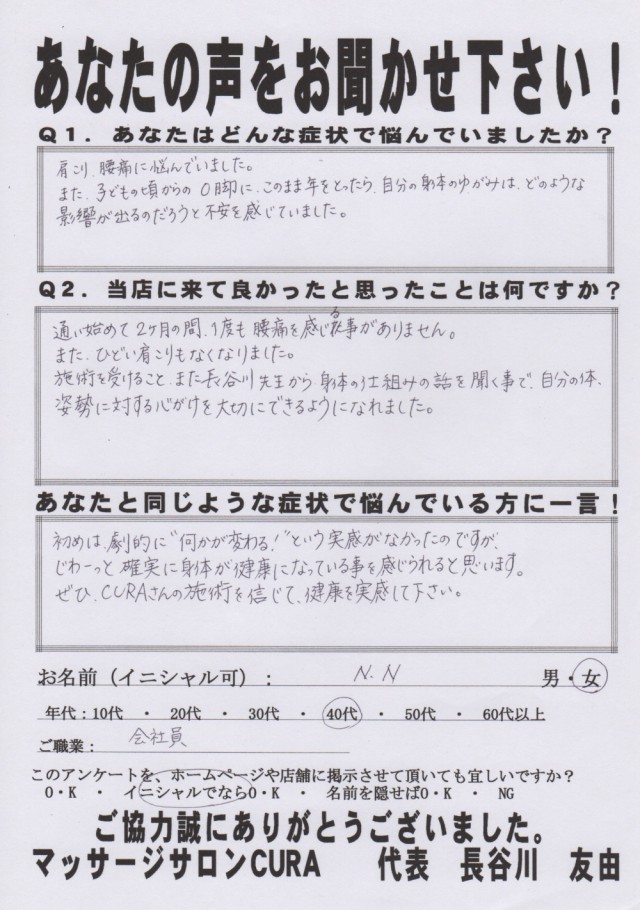 あなたの声をお聞かせ下さい！
Q１．あなたはどんな症状で悩んでいましたか？
肩こり、腰痛に悩んでいました。
また、子どもの頃からの O脚に、このまま年をとったら、自分の身体のゆがみは、どのような
影響が出るのだろうと不安を感じていました。
Q２．当店に来て良かったと思ったことは何ですか？
通い始めて 2ヶ月の間、1度も腰痛を感じる事がありません。
また、ひどい肩こりもなくなりました。
施術を受けること、また長谷川先生から身体の仕組みの話を聞く事で、自分の体、
姿勢に対する心がけを大切にできるようになれました。
あなたと同じような症状で悩んでいる方に一言！
初めは、劇的に"何かが変わる！"という実感がなかったのですが、
じわーっと確実に身体が健康になっている事を感じられると思います。
ぜひ、CURAさんの施術を信じて、健康を実感して下さい。
お名前（イニシャル可）： N.N 男・女
年代：10代 ・ 20代 ・ 30代 ・ 40代 ・ 50代 ・ 60代以上
ご職業： 会社員
このアンケートを、ホームページや店舗に掲示させて頂いても宜しいですか？
O・K ・ イニシャルでならO・K ・ 名前を隠せばO・K ・ NG
ご協力誠にありがとうございました。
マッサージサロンCURA 代表 長谷川 友由